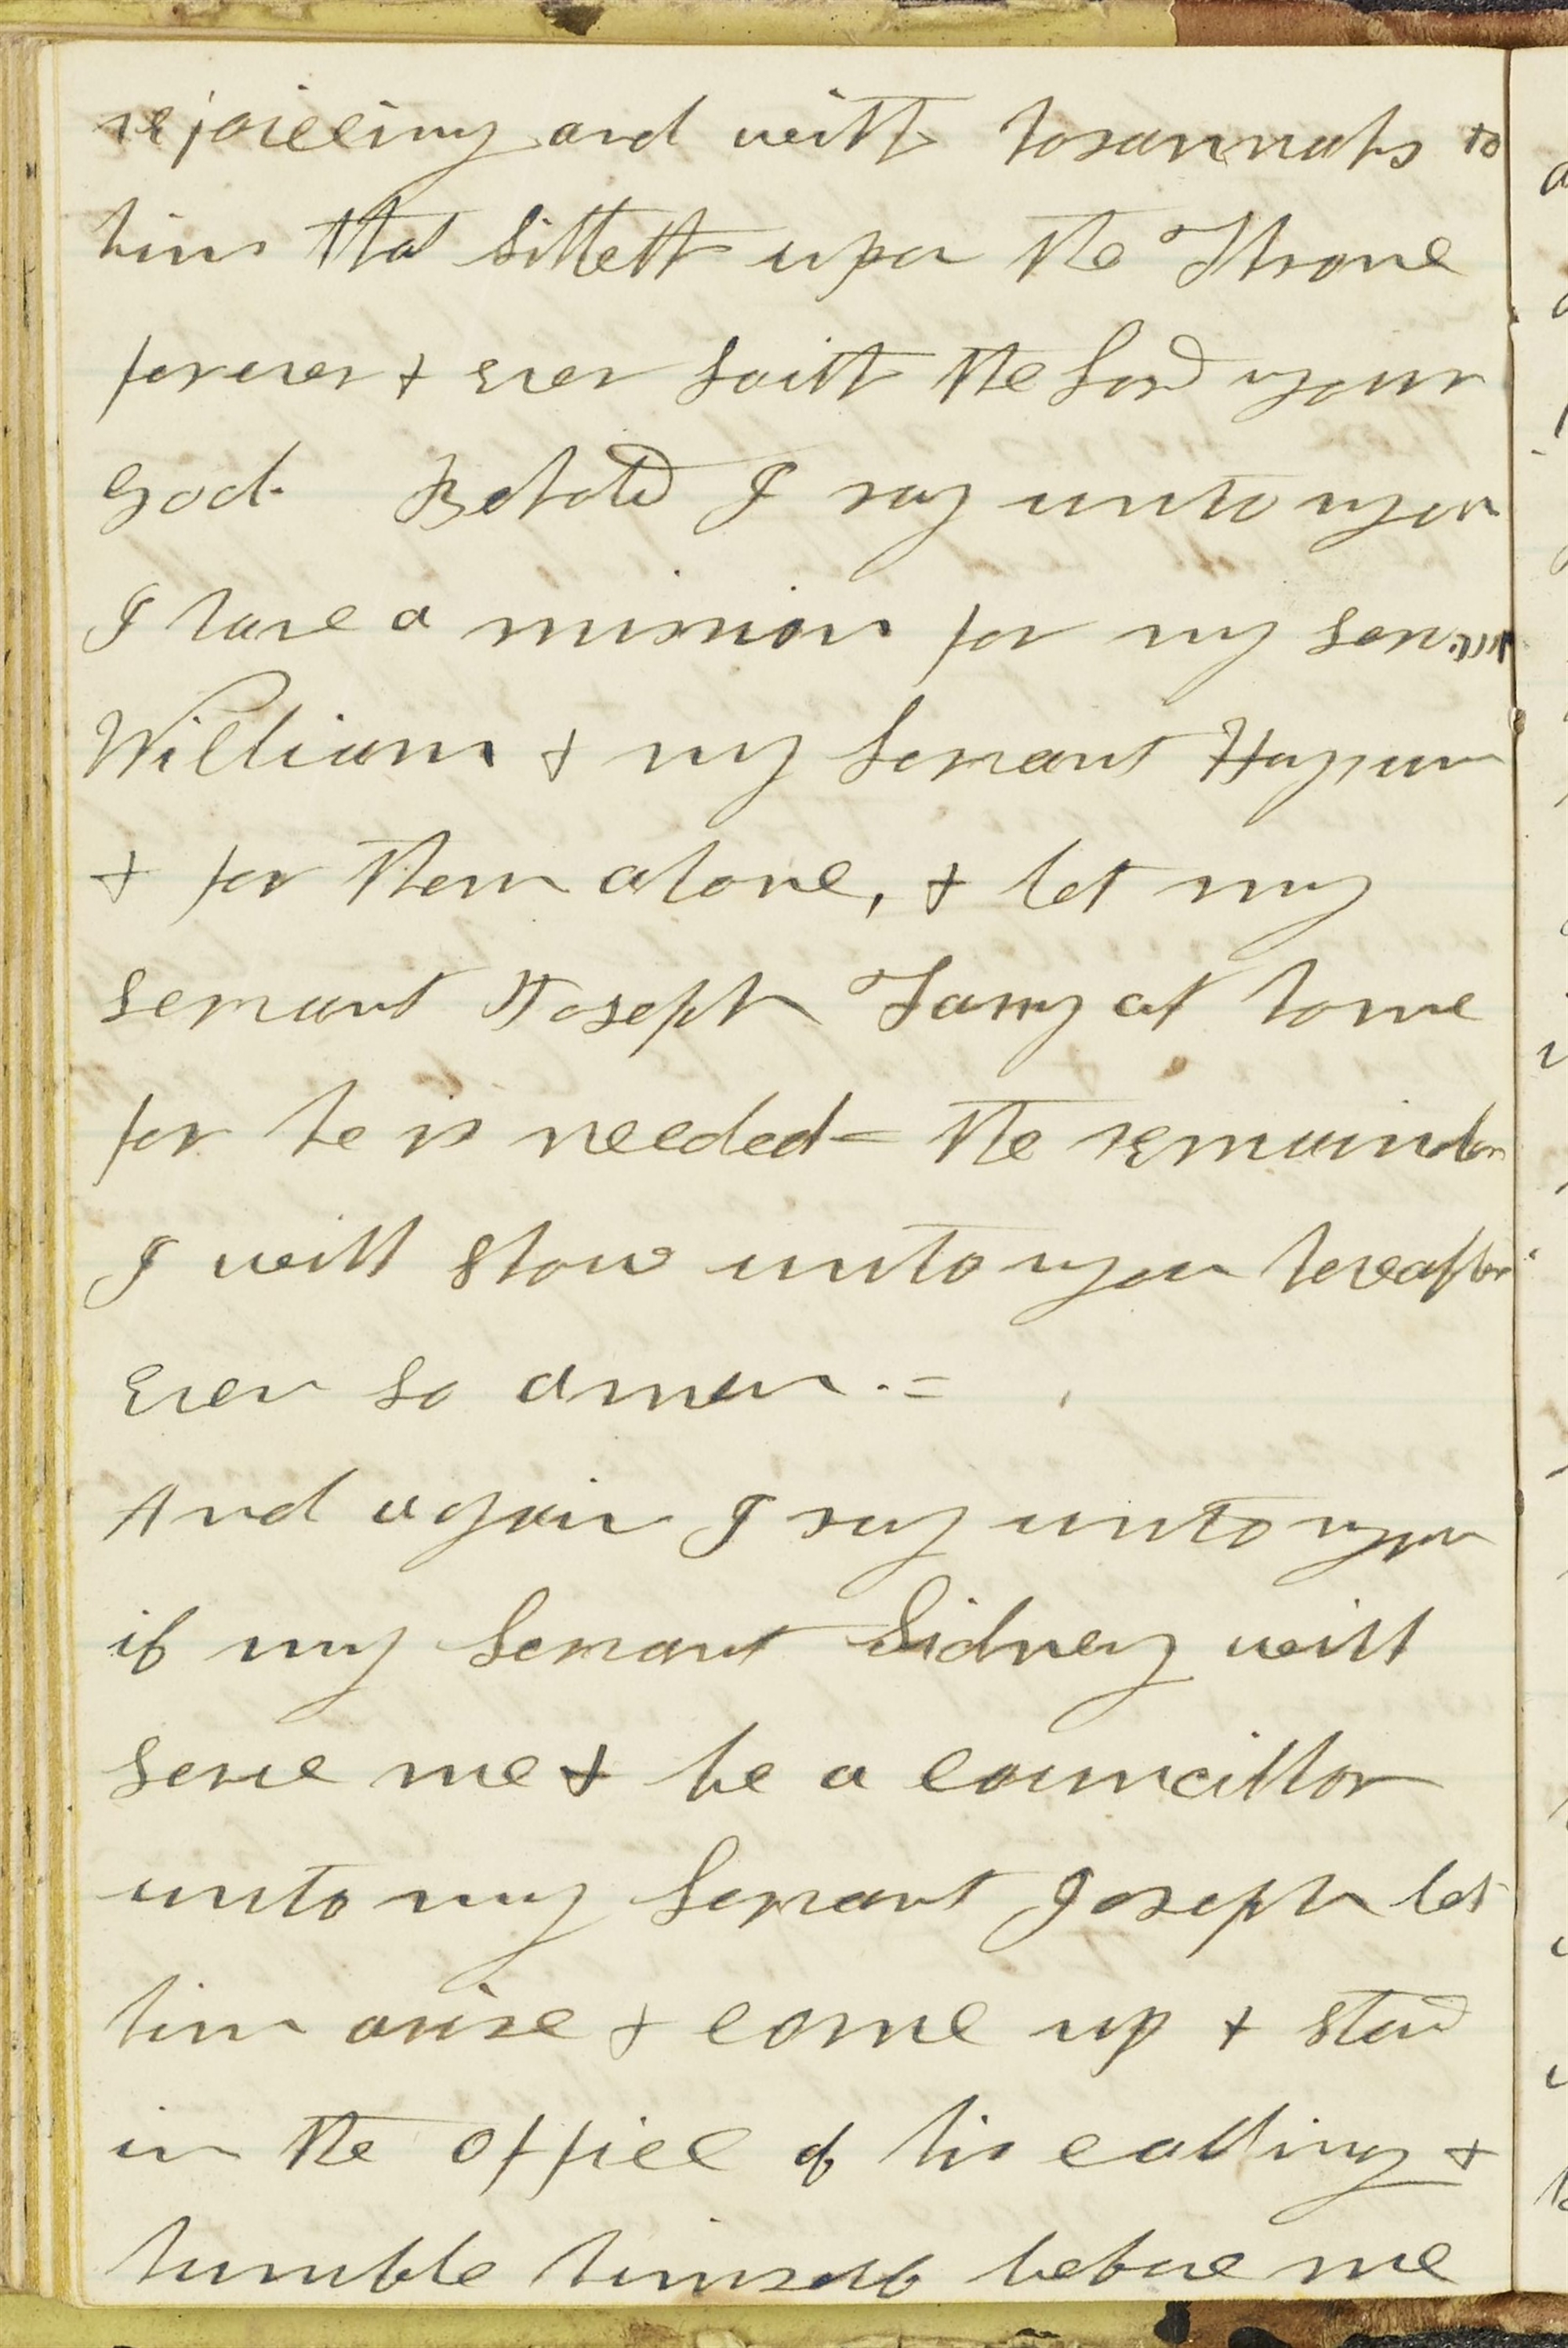 rejoiceing and with hosannahs to
him that sitteth upon the Throne
forever + ever saith the Lord your
God. Behold I say unto you
I have a mission for my serv
William + my Servant Hyrum
+ for them alone, + let my
servant Joseph Tarry at home
for he is needed = the remainder
I will show unto you hereafter
even so amen. =
And again I say unto you
if my Servant Sidney will
serve me + be a councillor
unto my Servant Joseph let
him arise + come up + stand
in the office of his calling +
humble himself before me